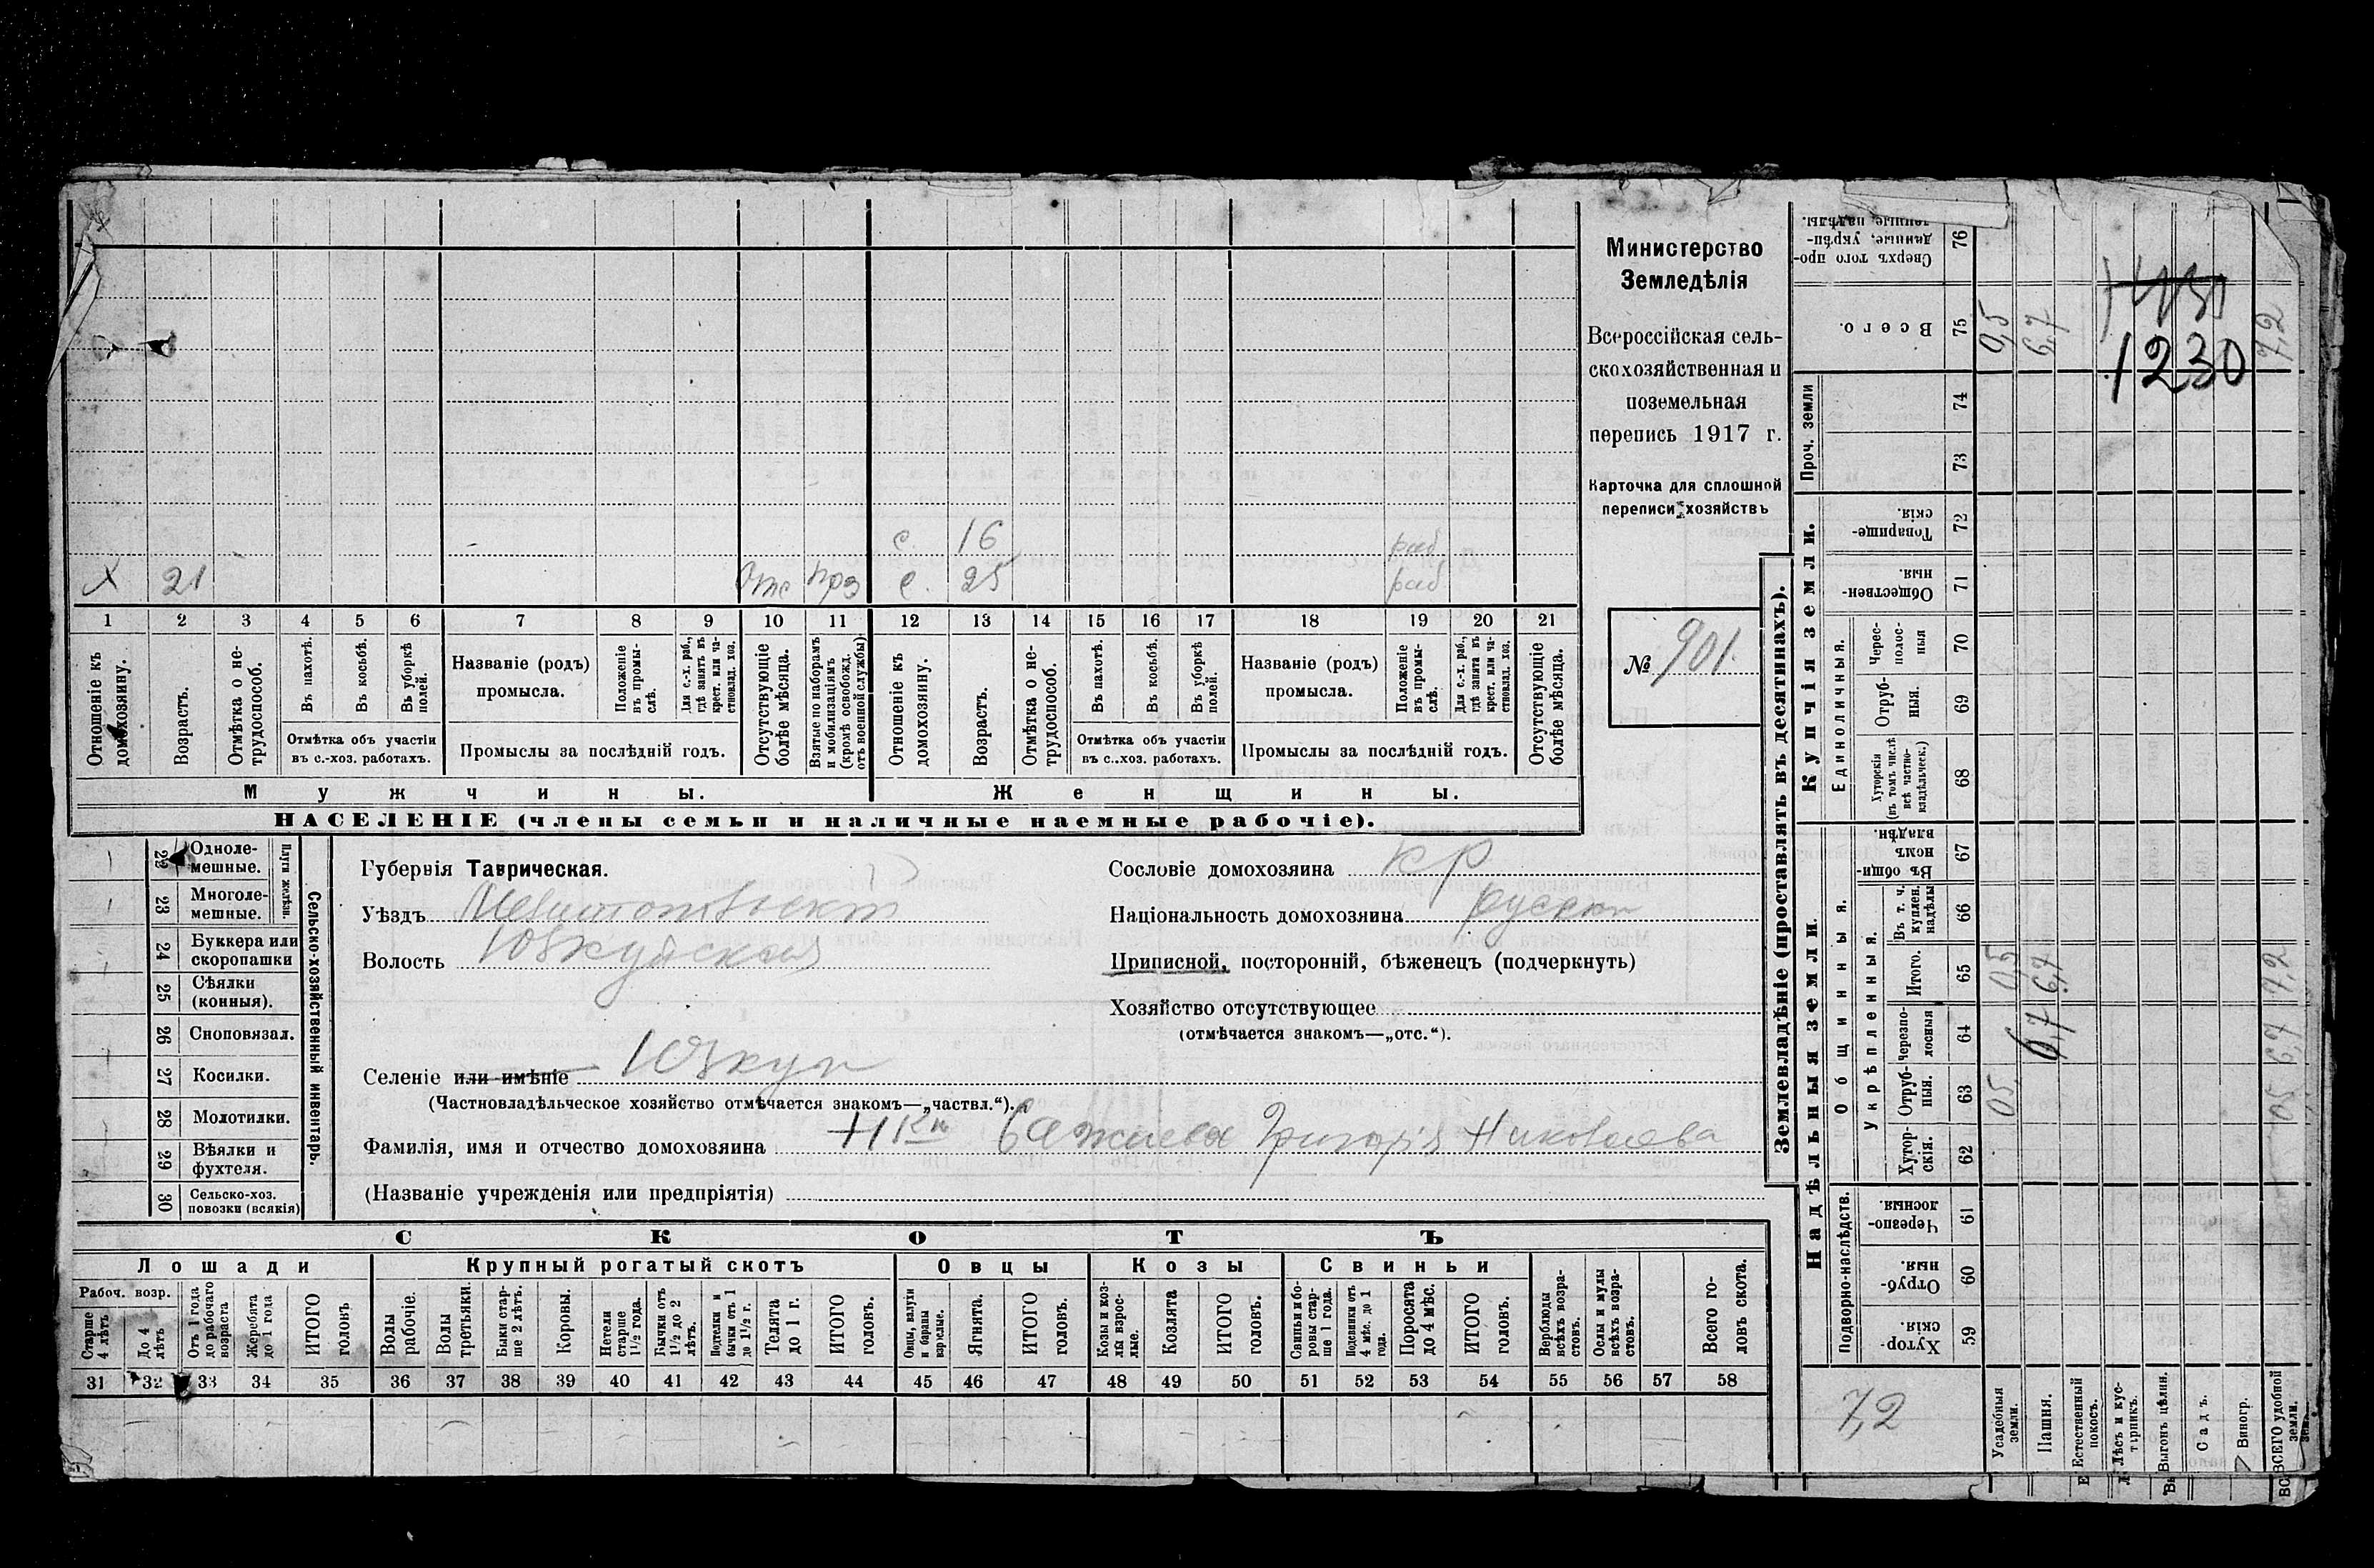 х 21 Отс Прз с. 16 раб
с. 25 раб
1 2 3 4 5 6 7 8 9 10 11 12 13 14 15 16 17 18 19 20 21
Отношеніе къ домохозяину.
Возрастъ.
Отмѣтка о не-трудоспособ.
Въ пахотѣ.
Въ косьбѣ.
Въ уборкѣ полей.
Отмѣтка объ участіи въ с.-хоз. работахъ.
Названіе (родъ) промысла.
Положеніе въ промы-слѣ.
Для с.-х. раб., гдѣ занятъ въ крест. или ча-стновлад. хоз.
Промыслы за послѣдній годъ.
Отсутствующіе болѣе мѣсяца.
Взятые по наборамъ и мобилизаціямъ (кромѣ освобожд. отъ военной службы)
Отношеніе къ домохозяину.
Возрастъ.
Отмѣтка о не-трудоспособ.
Въ пахотѣ.
Въ косьбѣ.
Въ уборкѣ полей.
Отмѣтка объ участіи въ с.-хоз. работахъ.
Названіе (родъ) промысла.
Положеніе въ промы-слѣ.
Для с.-х. раб., гдѣ занята въ крест. или ча-стновлад. хоз.
Промыслы за послѣдній годъ.
Отсутствующіе болѣе мѣсяца.
Мужчины. Женщины.
НАСЕЛЕНІЕ (члены семьи и наличные наемные рабочіе).
Министерство
Земледѣлія
Всероссійская сель-
скохозяйственная и
поземельная
перепись 1917 г.
Карточка для сплошной
переписи хозяйствъ
№ 901.
22 Одноле-мешные.
23 Многоле-мешные.
Плуги желѣзн.
24 Буккера или скоропашки
25 Сѣялки (конныя).
26 Сноповязал.
27 Косилки.
28 Молотилки.
29 Вѣялки и фухтеля.
30 Сельско-хоз. повозки (всякія)
Сельско-хозяйственный инвентарь.
Губернія Таврическая.
Уѣздъ Мелитопольскій
Волость Юзкуйская
Селеніе или имѣніе Юзкуи
(Частновладѣльческое хозяйство отмѣчается знакомъ—„частвл.“).
Фамилія, имя и отчество домохозяина Григорія Николаева
(Названіе учрежденія или предпріятія)
Сословіе домохозяина кр
Національность домохозяина русскій
Приписной, посторонній, бѣженецъ (подчеркнуть)
Хозяйство отсутствующее
(отмѣчается знакомъ—„отс.“).
СКОТЪ
Лошади Крупный рогатый скотъ Овцы Козы Свиньи
Рабоч. возр.
Старше 4 лѣтъ
До 4 лѣтъ
Отъ 1 года до рабочаго возраста
Жеребята до 1 года
ИТОГО головъ
Волы рабочіе.
Волы третьяки.
Быки стар-ше 2 лѣтъ.
Коровы.
Нетели старше 1½ года.
Бычки отъ 1½ до 2 лѣтъ.
Подтелки и бычки отъ 1 до 1½ г.
Телята до 1 г.
ИТОГО головъ.
Овцы, валухи и бараны взрослые.
Ягнята.
ИТОГО головъ.
Козы и коз-лы взрос-лые.
Козлята
ИТОГО головъ.
Свиньи и бо-ровы стар-ше 1 года.
Подсвинки отъ 4 мѣс. до 1 года.
Поросята до 4 мѣс.
ИТОГО головъ.
Верблюды всѣхъ возра-стовъ.
Ослы и мулы всѣхъ возра-стовъ.
Всего го-ловъ скота.
31 32 33 34 35 36 37 38 39 40 41 42 43 44 45 46 47 48 49 50 51 52 53 54 55 56 57 58
Землевладѣніе (проставлять въ десятинахъ).
Купчія земли.
Надѣльныя земли.
Сверхъ того про-данные, укрѣп-ленные надѣлы. 76
Всего. 75 0,5 6,7 7,2
1230
Проч. земли 74 73
Товарище-скія. 72
Обществен-ныя 71
Единоличныя.
Черес-полос-ныя 70
Отруб-ныя. 69
Хуторскія (въ томъ числѣ всѣ частно-владѣльческ.) 68
Общинныя.
Въ общин-номъ владѣн. 67
Укрѣпленныя.
Въ т. ч. куплен. надѣлы 66
Итого. 65 0,5 6,7 7,2
Черезпо-лосныя 64 6,7 6,7
Отруб-ныя. 63 05 05
Хутор-скія. 62
Подворно-наслѣдств.
Черезпо-лосныя. 61
Отруб-ныя. 60
Хутор-скія. 59
7,2
Усадебныя земли.
Пашня.
Естественный покосъ.
Лѣсъ и кус-тарникъ.
Выгонъ цѣлин.
Садъ.
Виногр.
ВСЕГО удобной земли.